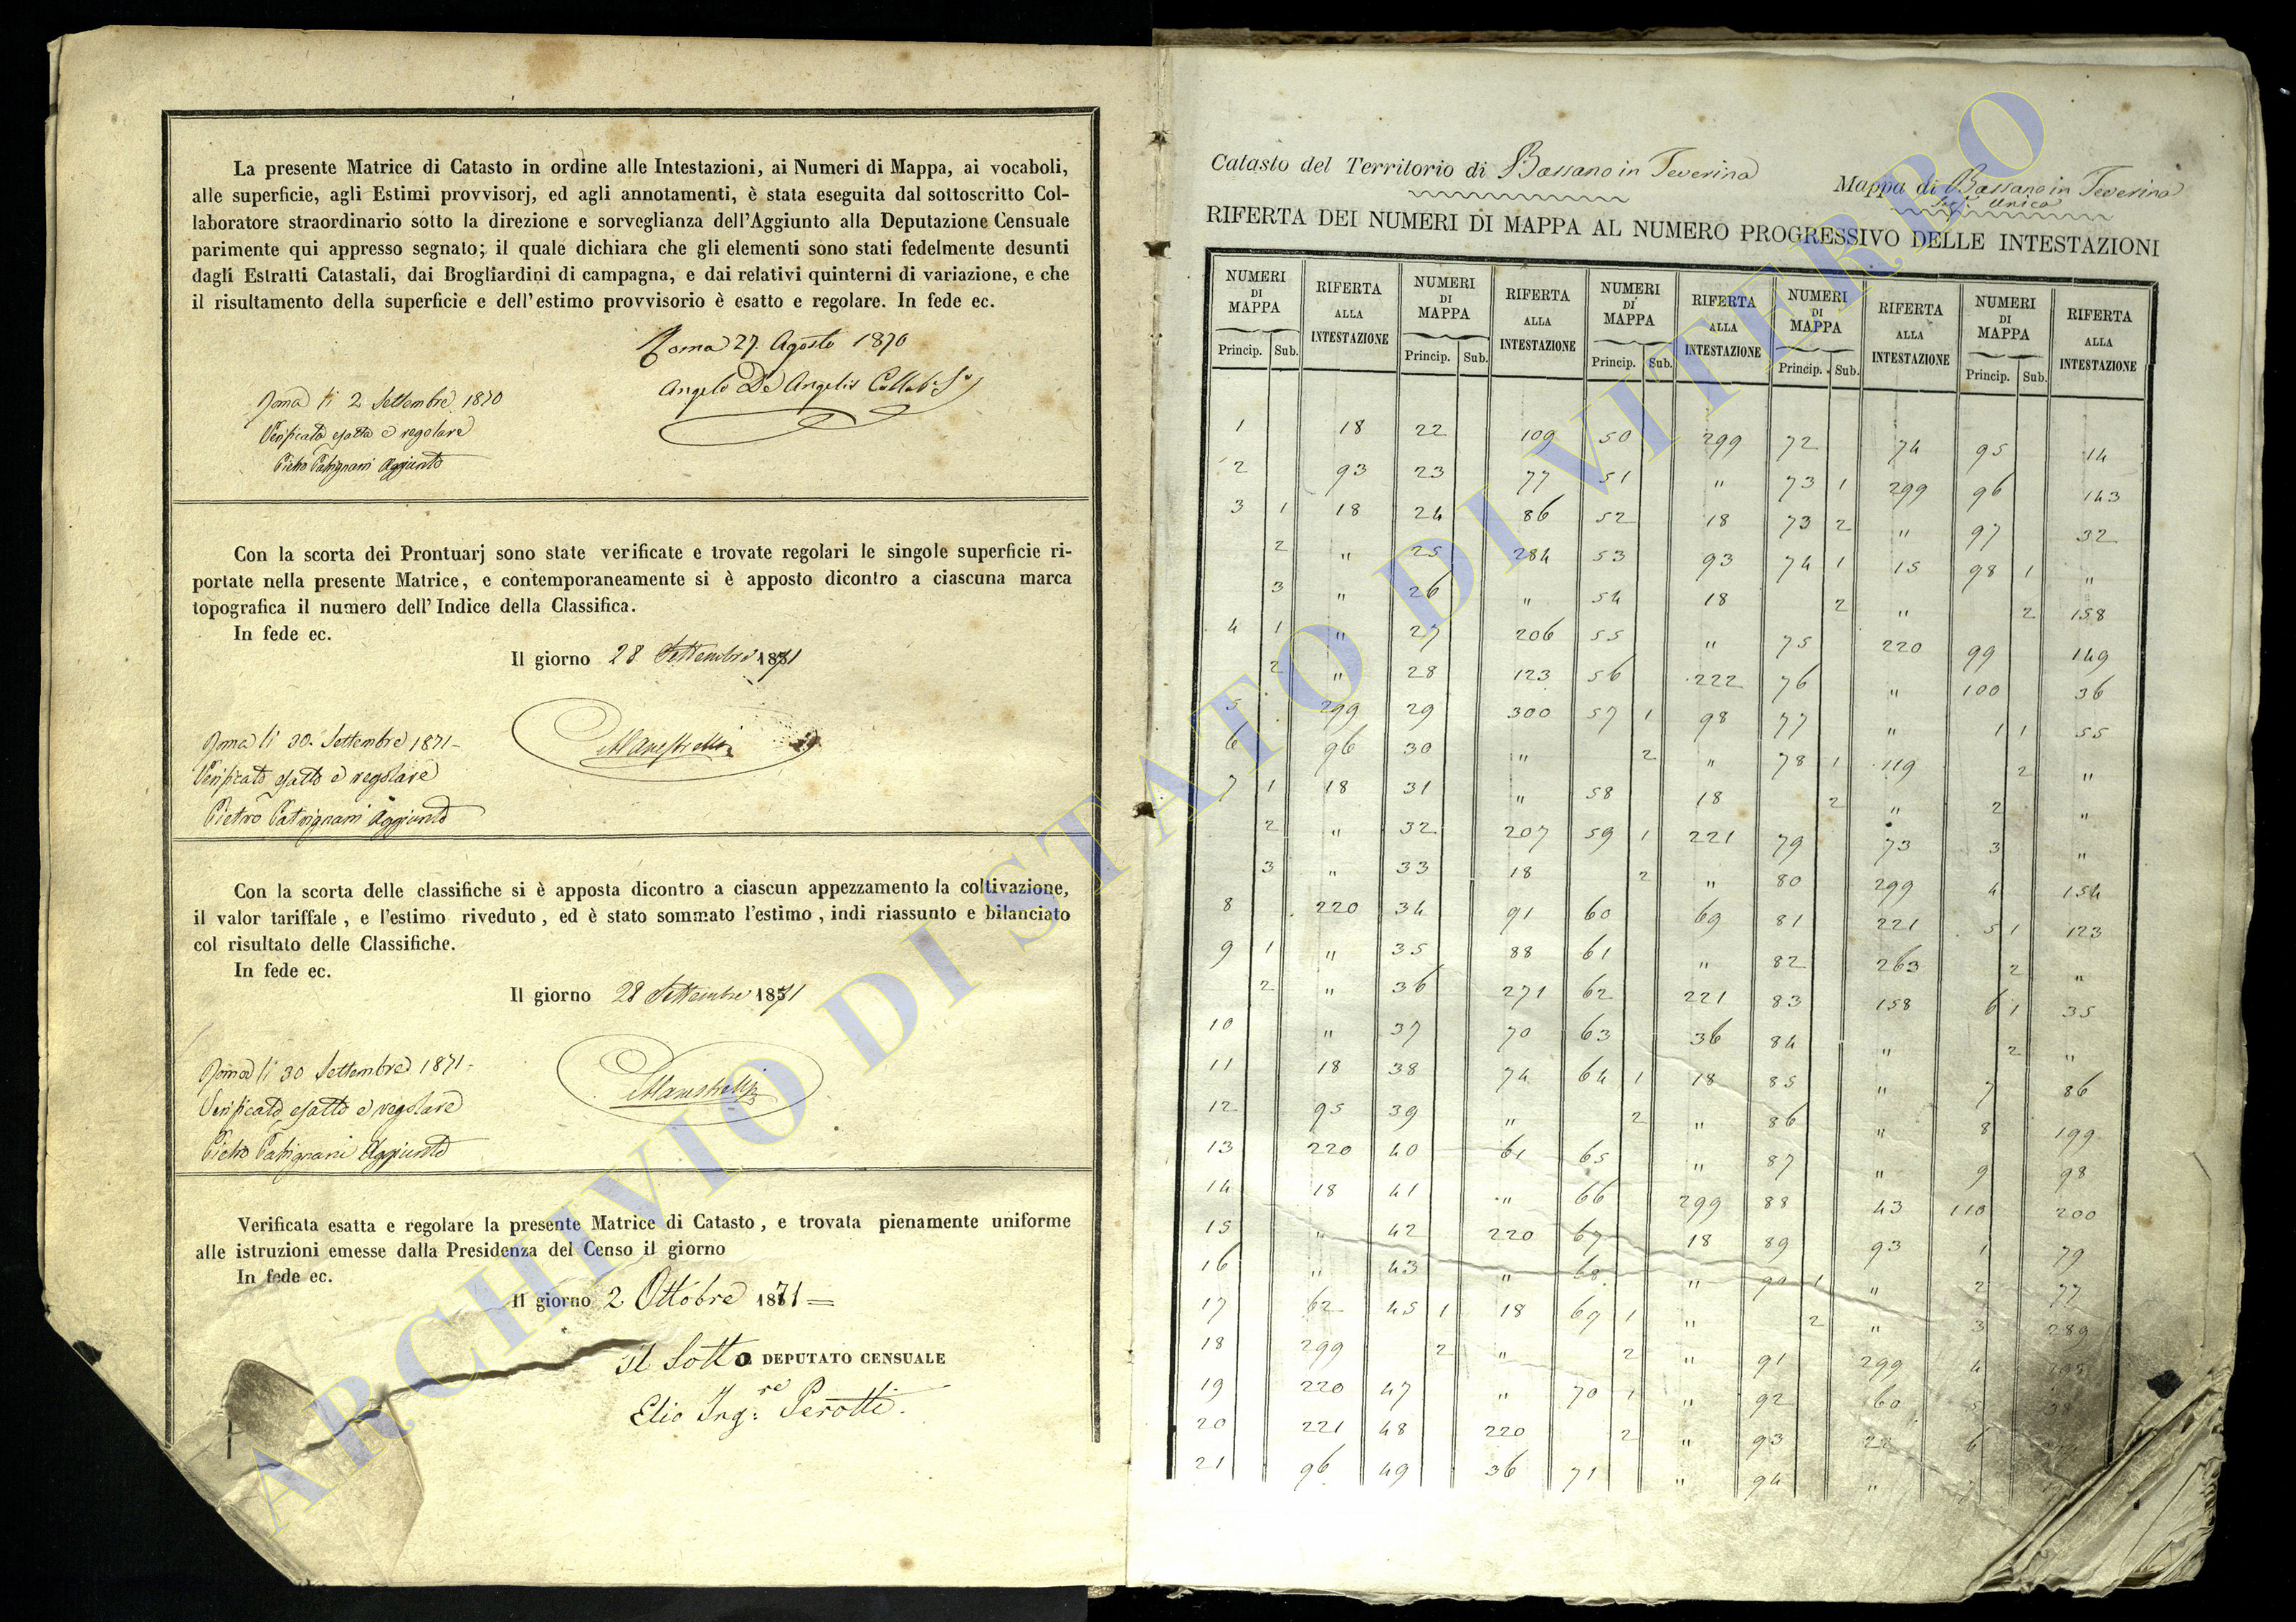 La presente Matrice di Catasto in ordine alle Intestazioni, ai Numeri di Mappa, ai vocaboli,
alle superficie, agli Estimi provvisorj, ed agli annotamenti, è stata eseguita dal sottoscritto Col-
laboratore straordinario sotto la direzione e sorveglianza dell'Aggiunto alla Deputazione Censuale
parimente qui appresso segnato; il quale dichiara che gli elementi sono stati fedelmente desunti
dagli Estratti Catastali, dai Brogliardini di campagna, e dai relativi quinterni di variazione, e che
il risultamento della superficie e dell'estimo provvisorio è esatto e regolare. In fede ec.
Roma 27. Agosto 1870
Angelo De Angelis
Roma li 2 Settembre 1870
Verificato esatto e regolare
Pietro Aggiunto
Con la scorta dei Prontuarj sono state verificate e trovate regolari le singole superficie ri-
portate nella presente Matrice, e contemporaneamente si è apposto dicontro a ciascuna marca
topografica il numero dell'Indice della Classifica.
In fede ec.
Il giorno 28 Settembre 1871
Roma li 30. Settembre 1871
Verificato esatto e regolare
Pietro Aggiunto
Con la scorta delle classifiche si è apposta dicontro a ciascun appezzamento la coltivazione,
il valor tariffale, e l'estimo riveduto, ed è stato sommato l'estimo, indi riassunto e bilanciato
col risultato delle Classifiche.
In fede ec.
Il giorno 28 Settembre 1871
Roma li 30 Settembre 1871
Verificato esatto e regolare
Pietro Aggiunto
Verificata esatta e regolare la presente Matrice di Catasto, e trovata pienamente uniforme
alle istruzioni emesse dalla Presidenza del Censo il giorno
In fede ec.
Il giorno 2 Ottobre 1871 =
Il Sotto DEPUTATO CENSUALE
Elio Ing:re Perotti.
Catasto del Territorio di Bassano in Teverina
Mappa di Bassano in Teverina
Unica
RIFERTA DEI NUMERI DI MAPPA AL NUMERO PROGRESSIVO DELLE INTESTAZIONI
NUMERI DI MAPPA RIFERTA ALLA INTESTAZIONE NUMERI DI MAPPA RIFERTA ALLA INTESTAZIONE NUMERI DI MAPPA RIFERTA ALLA INTESTAZIONE NUMERI DI MAPPA RIFERTA ALLA INTESTAZIONE NUMERI DI MAPPA RIFERTA ALLA INTESTAZIONE
Princip. Sub. Princip. Sub. Princip. Sub. Princip. Sub. Princip. Sub.
1 18 22 109 50 299 72 74 95 14
2 93 23 77 51 " 73 1 299 96 143
3 1 18 24 86 52 18 73 2 " 97 32
2 " 25 284 53 93 74 1 15 98 1 "
3 " 26 " 54 18 2 " 2 158
4 1 " 27 206 55 " 75 220 99 149
2 " 28 123 56 222 76 " 100 36
5 299 29 300 57 1 98 77 " 1 1 55
6 96 30 " 2 " 78 1 119 2 "
7 1 18 31 " 58 18 2 " 2 "
2 " 32 207 59 1 221 79 73 3 "
3 " 33 18 2 " 80 299 4 154
8 220 34 91 60 69 81 221 5 1 123
9 1 " 35 88 61 " 82 263 2 "
2 " 36 271 62 221 83 158 6 1 35
10 " 37 70 63 36 84 " 2 "
11 18 38 74 64 1 18 85 " 7 86
12 95 39 " 2 " 86 " 8 199
13 220 40 61 65 " 87 " 9 98
14 18 41 " 66 299 88 43 110 200
15 " 42 220 67 18 89 93 1 79
16 " 43 " 68 " 90 1 " 2 77
17 62 45 1 18 69 1 " 2 " 3 289
18 299 2 " 2 " 91 299 4
19 220 47 " 70 1 " 92 60 5
20 221 48 220 2 " 93 22 6
21 96 49 36 71 " 94 "
ARCHIVIO DI STATO DI VITERBO